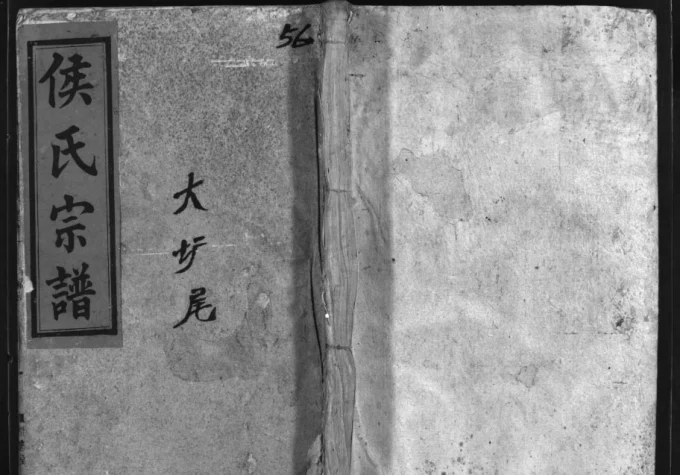 侯氏宗譜
大圹尾
56